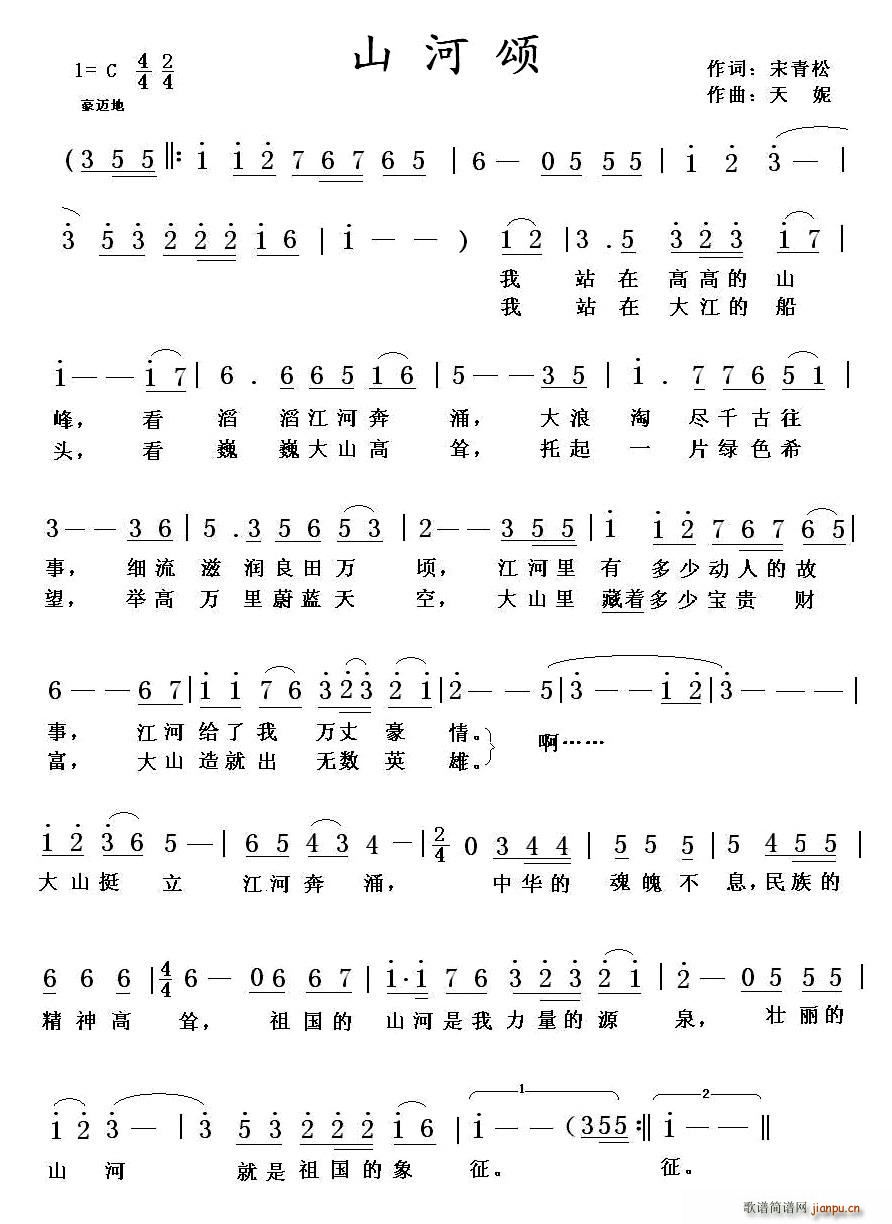 山河颂
1= C 4/4 2/4
作词：宋青松
豪迈地
作曲：天 妮
( 3 5 5 ‖: 1 1 2 7 6 7 6 5 | 6 — 0 5 5 5 5 | 1 2 3 — — |
3 5 3 2 2 2 1 6 | 1 — — ) 1 2 | 3 . 5 3 2 3 1 7 |
我 站 在 高 高 的 山
我 站 在 大 江 的 船
1 — — 1 7 | 6 . 6 6 5 1 6 | 5 — — 3 5 | 1 . 7 7 6 5 1 |
峰， 看 滔 滔 江 河 奔 涌， 大 浪 淘 尽 千 古 往
头， 看 巍 巍 大 山 高 耸， 托 起 一 片 绿 色 希
3 — — 3 6 | 5 . 3 5 6 5 3 | 2 — — 3 5 5 | 1 1 2 7 6 7 6 5 |
事， 细 流 滋 润 良 田 万 顷， 江 河 里 有 多 少 动 人 的 故
望， 举 高 万 里 蔚 蓝 天 空， 大 山 里 藏着 多 少 宝 贵 财
6 — — 6 7 | 1 1 7 6 3 2 3 2 1 | 2 — — 5 | 3 — — 1 2 | 3 — — |
事， 江 河 给 了 我 万 丈 豪 情。 啊……
富， 大 山 造 就 出 无 数 英 雄。
1 2 3 6 5 — | 6 5 4 3 4 — | 2/4 0 3 4 4 | 5 5 5 | 5 4 5 5 |
大 山 挺 立 江 河 奔 涌， 中 华 的 魂 魄 不 息， 民 族 的
6 6 6 | 4/4 6 — 0 6 6 7 | 1 · 1 7 6 3 2 3 2 1 | 2 — 0 5 5 5 |
精 神 高 耸， 祖 国 的 山 河 是 我 力 量 的 源 泉， 壮 丽 的
1 2 3 — | 3 5 3 2 2 2 1 6 | 1 1 — ( 3 5 5 :‖ 2 1 — — ‖
山 河 就 是 祖 国 的 象 征。 征。
歌谱简谱网
jianpu.cn